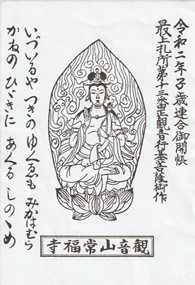 令和二年子歳連合御開帳
最上札所第十三番正観音行基菩薩御作
いづいるや つきのゆくゑも みかはむら
かねのひゞきに あくるしのゝめ
観音山常福寺